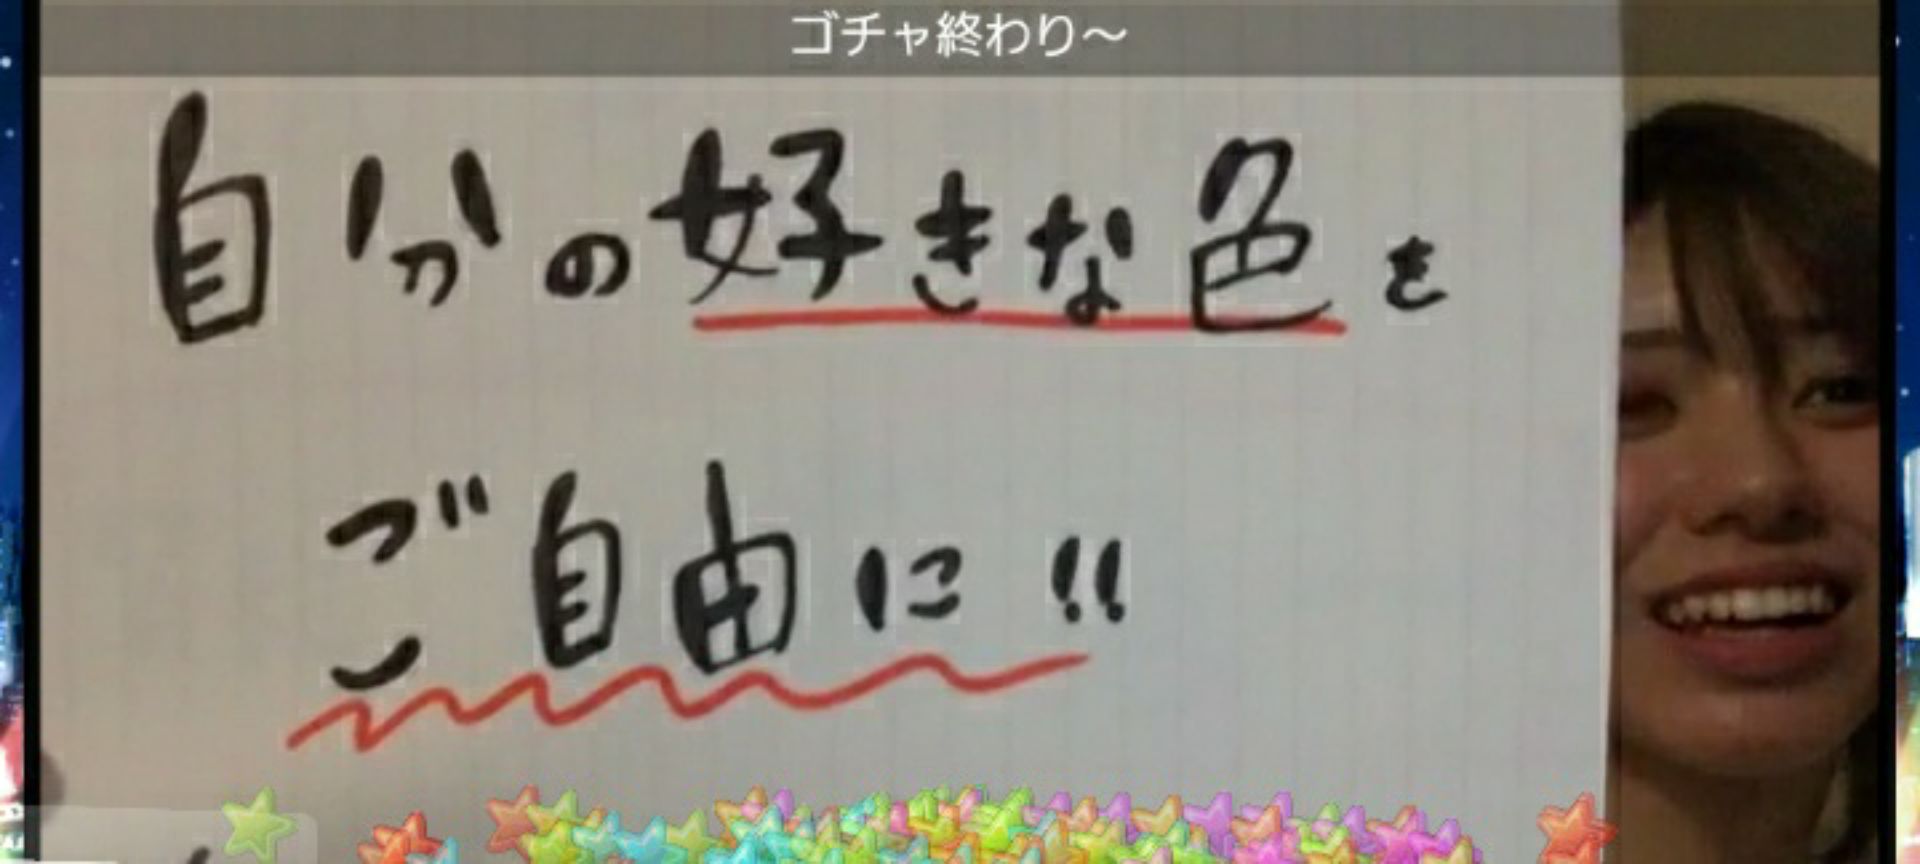 ゴチャ終わり～
自分の好きな色を
ご自由に!!